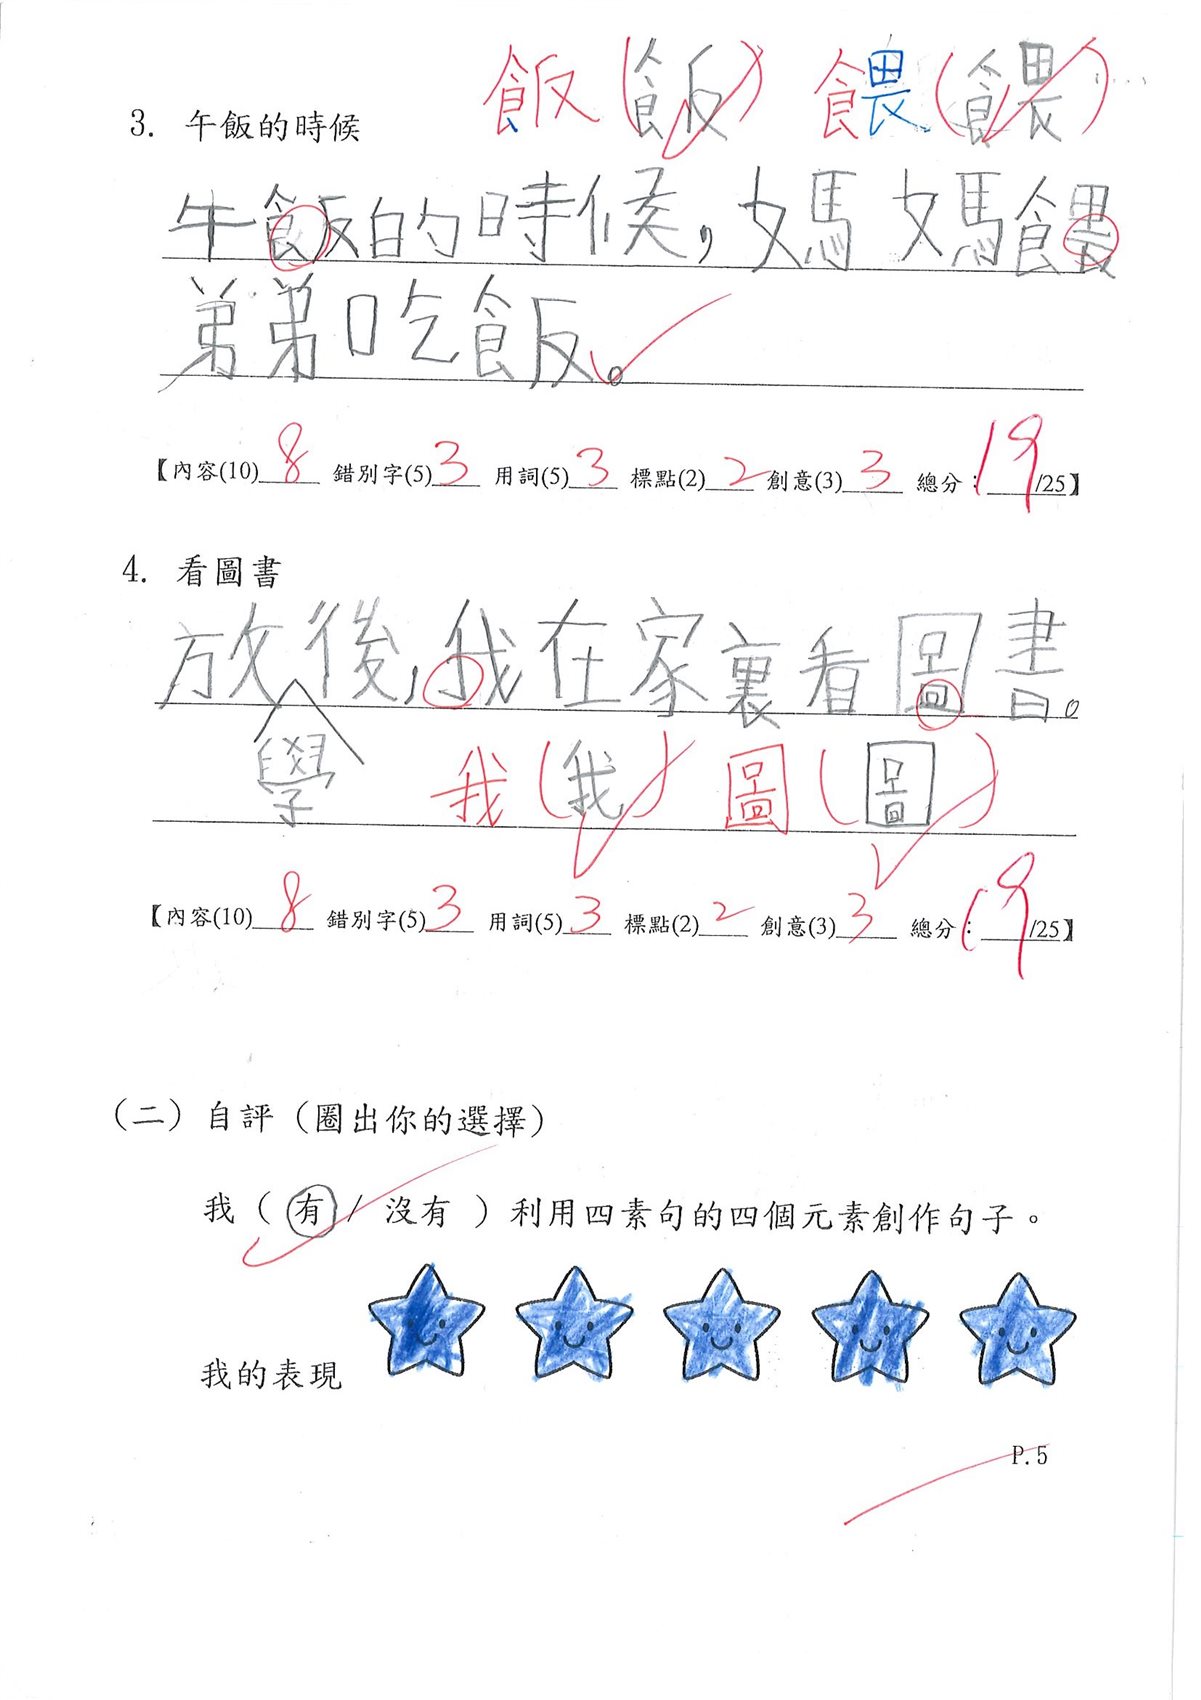 飯(飯) 餵(餵)
3. 午飯的時候
午飯的時候,媽媽餵
弟弟吃飯。
【內容(10) 8 錯別字(5) 3 用詞(5) 3 標點(2) 2 創意(3) 3 總分: 19/25】
4. 看圖書
放後,我在家裏看圖書。
學 我(我) 圖(圖)
【內容(10) 8 錯別字(5) 3 用詞(5) 3 標點(2) 2 創意(3) 3 總分: 19/25】
(二) 自評 (圈出你的選擇)
我 ( 有 / 沒有 ) 利用四素句的四個元素創作句子。
我的表現
P.5